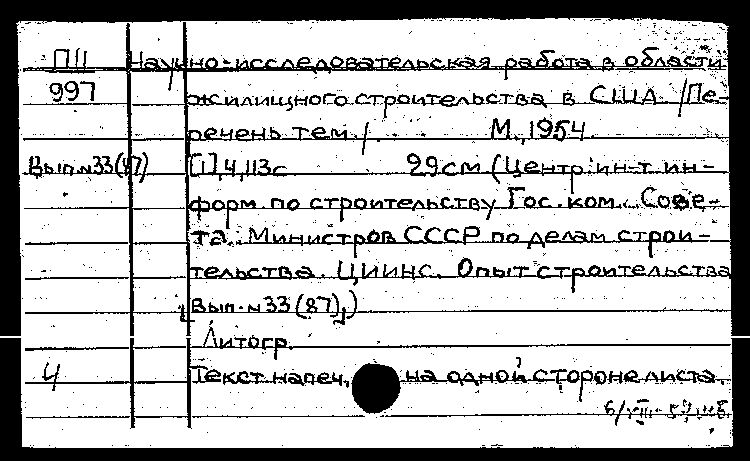 ПII Научно-исследовательская работа в области
997 жилищного строительства в США. /Пе-
речень тем./ М., 1954.
Вып.№33(87) [1], 4, 113с 29см (Центр. ин-т ин-
форм. по строительству Гос. ком. Сове-
та Министров СССР по делам строи-
тельства. ЦИИНС. Опыт строительства
[Вып.№33(87)])
Литогр.
4 Текст напеч. на одной стороне листа.
6/VIII-57